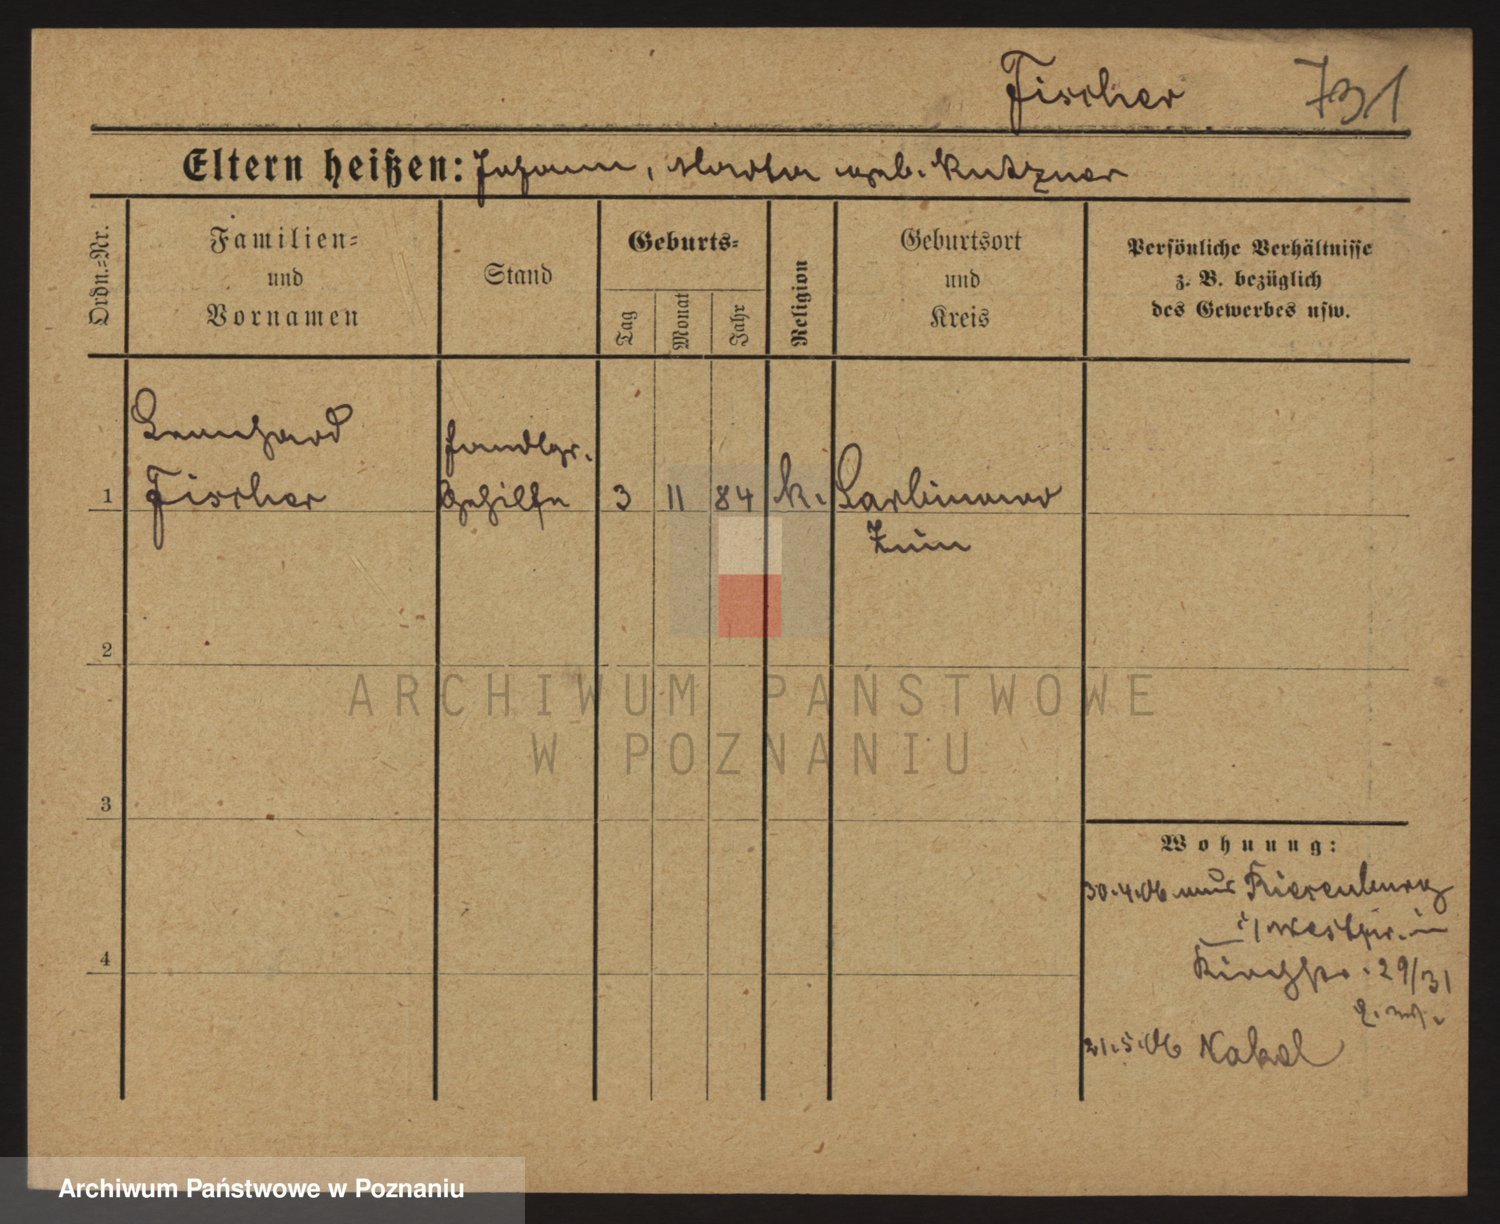 Fischer 731
Eltern heißen: Johann, Martha geb. Kutzner
Ordn.=Nr.
Familien=
und
Vornamen
Stand
Geburts=
Tag
Monat
Jahr
Religion
Geburtsort
und
Kreis
Persönliche Verhältnisse
z. B. bezüglich
des Gewerbes usw.
Leonhard
Fischer
Handlgs.
Gehilfe
1
3 11 84 k.
2
3
4
Wohnung:
30.4.06 aus Riesenburg
i/Westpr. in
29/31
21.5.06 Nakel
ARCHIWUM PAŃSTWOWE
W POZNANIU
Archiwum Państwowe w Poznaniu